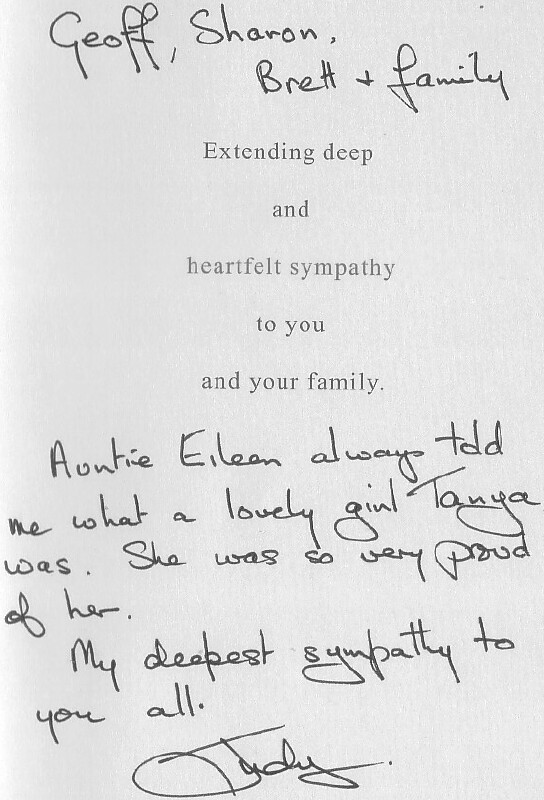 Geoff, Sharon,
Brett + family
Extending deep
and
heartfelt sympathy
to you
and your family.
Auntie Eileen always told
me what a lovely girl Tanya
was. She was so very proud
of her.
My deepest sympathy to
you all.
Judy.